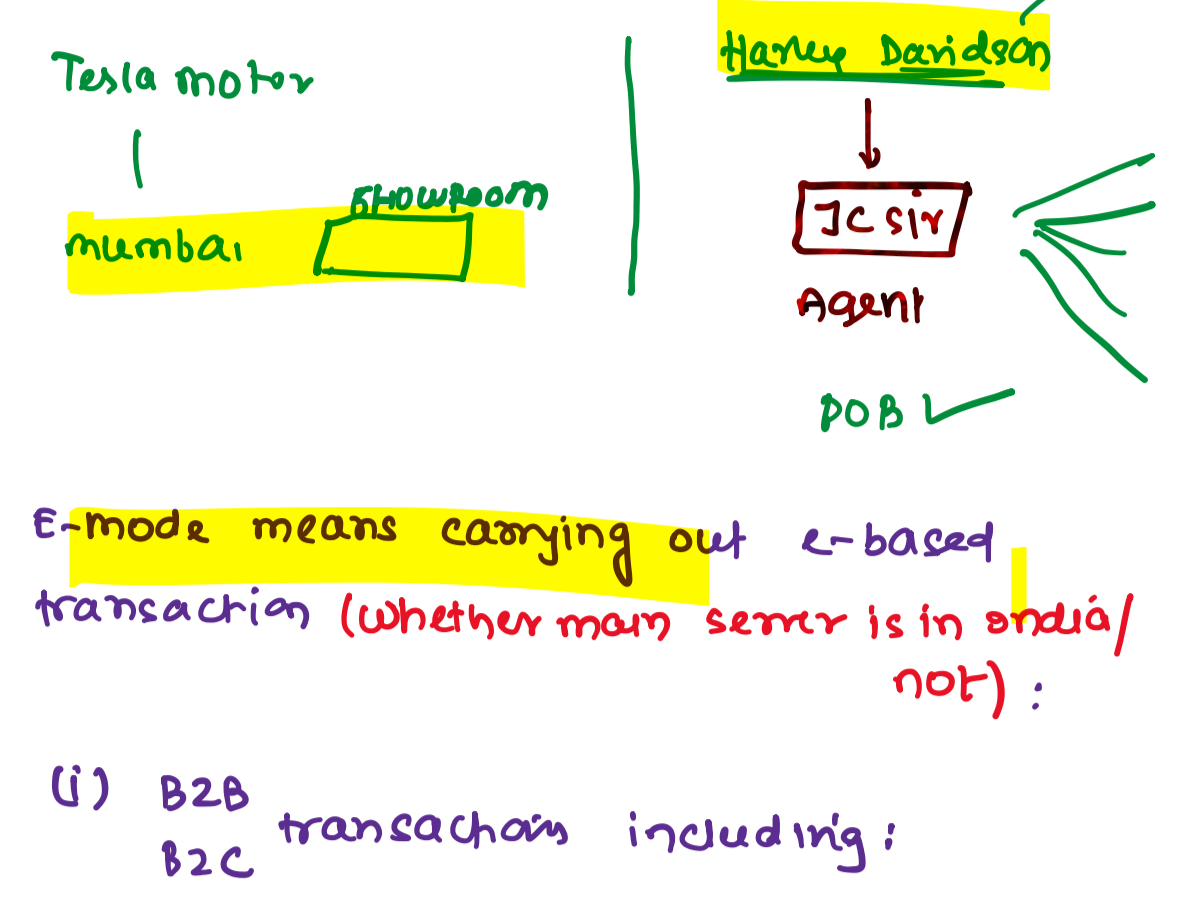 Tesla motor
SHOWROOM
mumbai
Harley Davidson
JC sir
Agent
POB
E-mode means carrying out e-based
transaction (whether main server is in India/
not) :
(i) B2B
B2C
transactions including :